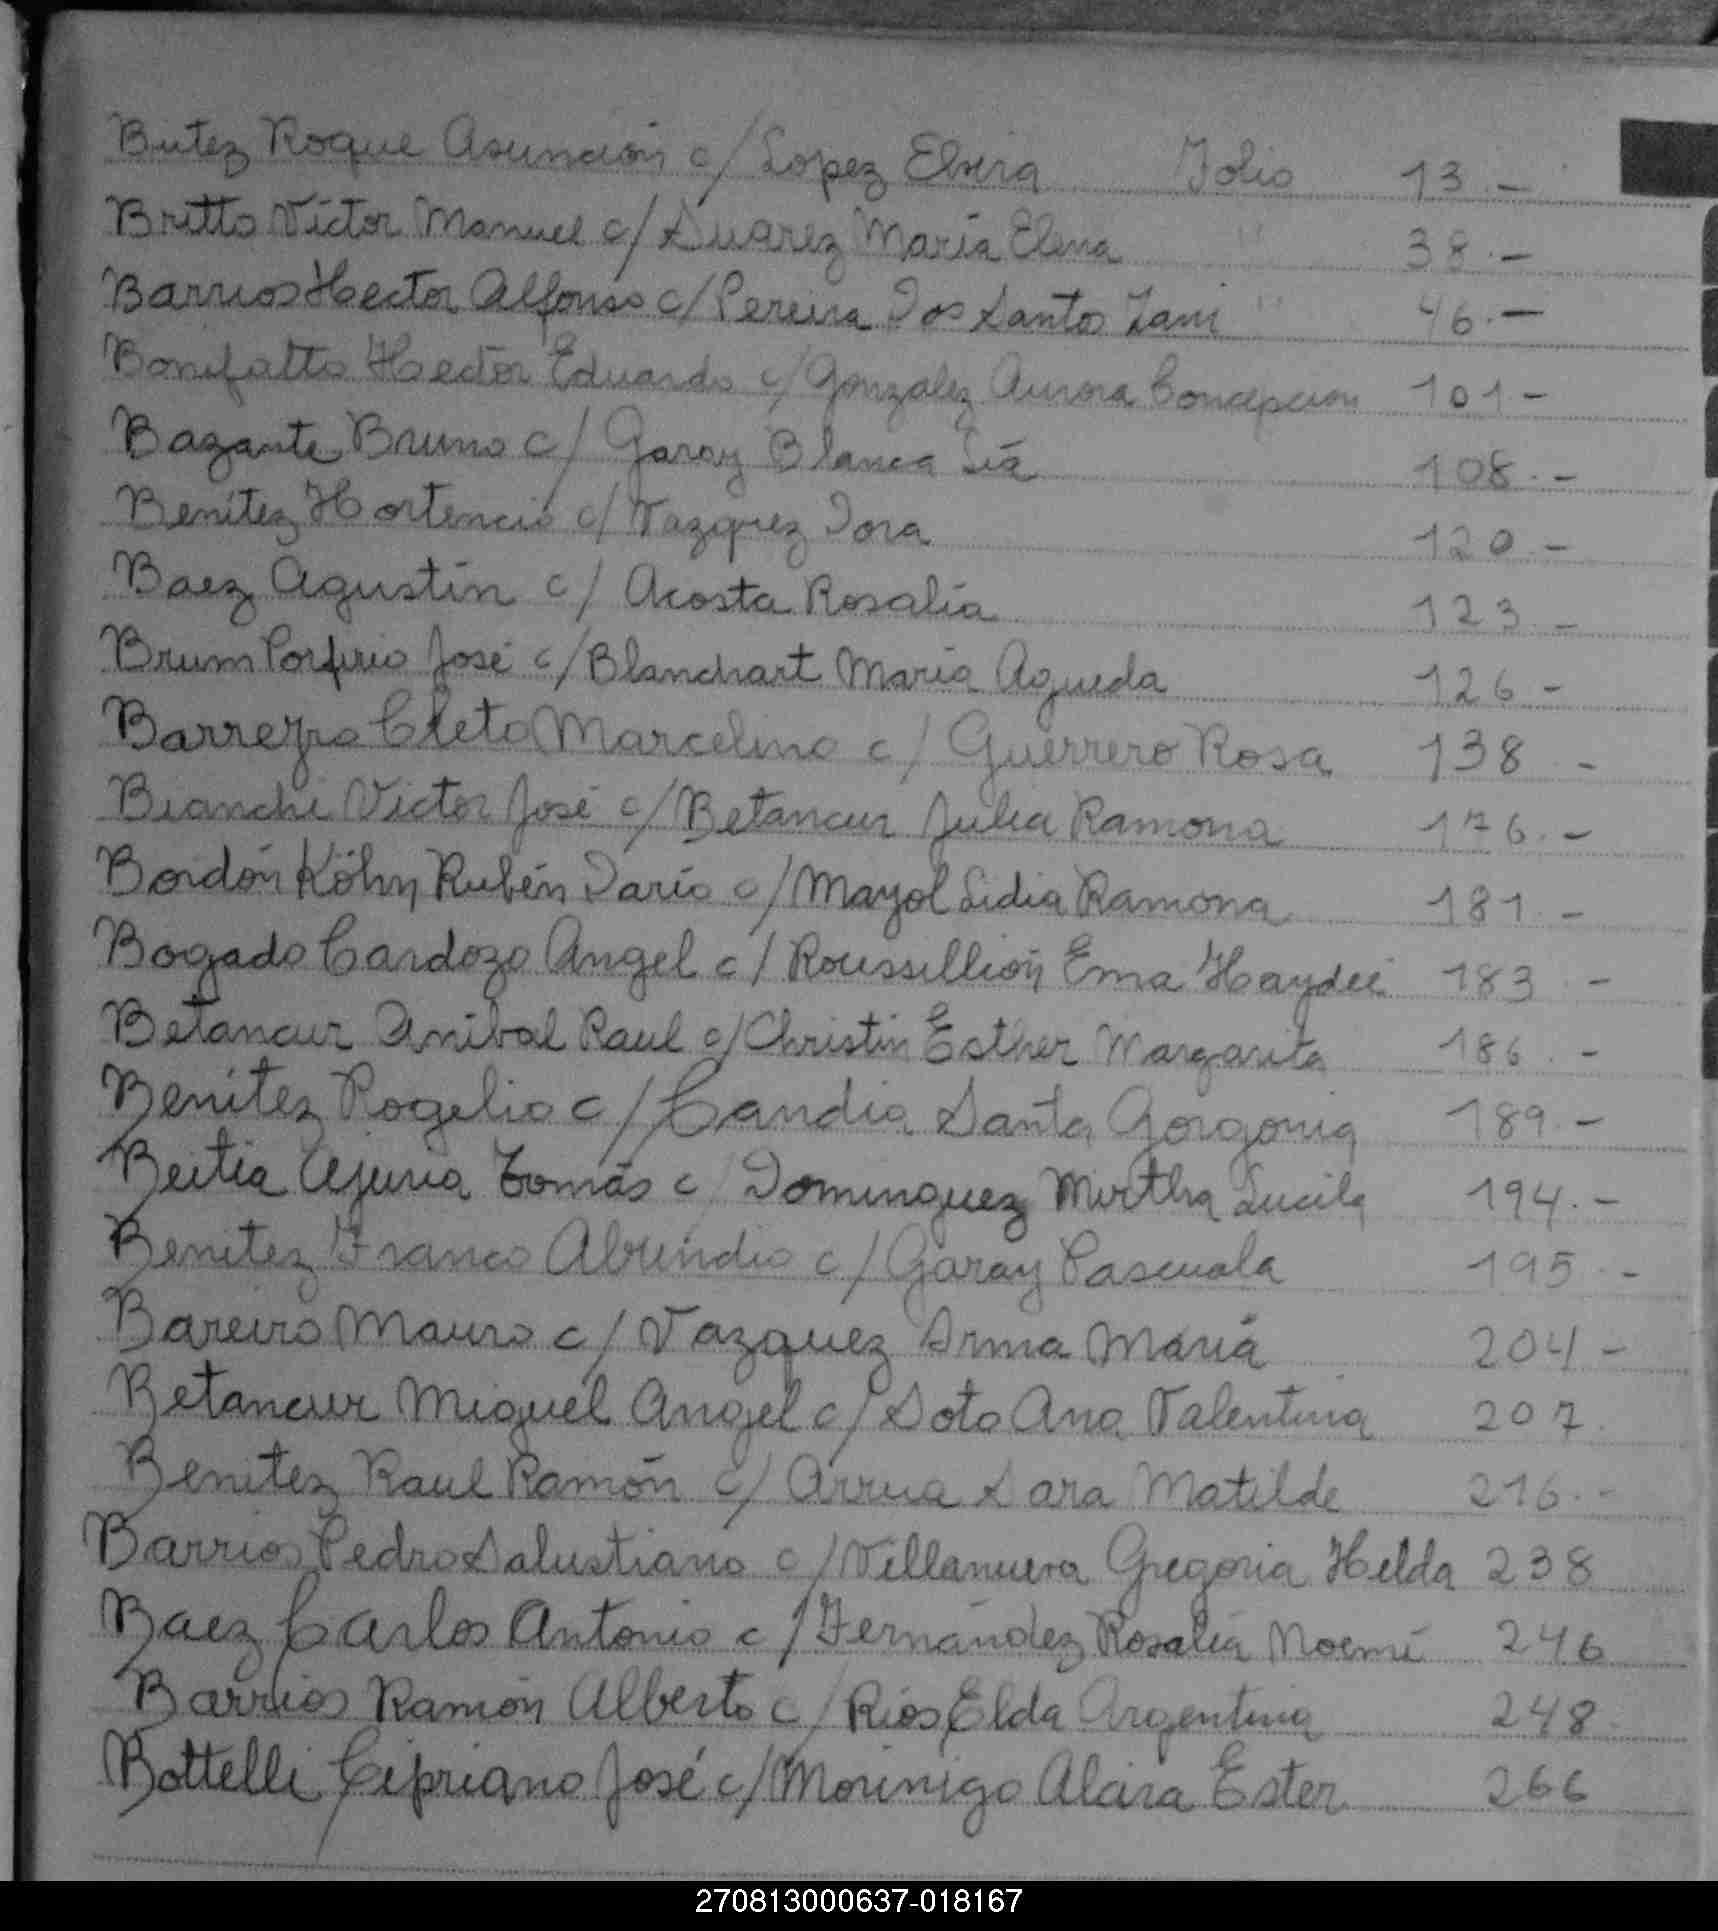 Butez Roque Asunción c/ Lopez Elvira Folio 13.-
Britto Victor Manuel c/ Suarez María Elena " 38.-
Barrios Hector Alfonso c/ Pereira Dos Santos Zani " 46.-
Bonifatto Hector Eduardo c/ Gonzalez Aurora Concepcion 101.-
Bazante Bruno c/ Garay Blanca Lia 108.-
Benítez Hortencio c/ Vazquez Dora 120.-
Baez Agustín c/ Acosta Rosalía 123.-
Brum Porfirio José c/ Blanchart María Agueda 126-
Barreyro Cleto Marcelino c/ Guerrero Rosa 138.-
Bianchi Victor José c/ Betancur Julia Ramona 176.-
Bordón Köhn Rubén Darío c/ Mayol Lidia Ramona 181.-
Bogado Cardozo Angel c/ Roussillión Ema Haydeé 183.-
Betancur Anibal Raul c/ Christin Esther Margarita 186.-
Benítez Rogelio c/ Candia Santa Gorgonia 189.-
Beitia Ajuria Tomás c/ Dominguez Mirtha Lucila 194.-
Benitez Franco Abundio c/ Garay Pascuala 195.-
Bareiro Mauro c/ Vazquez Irma María 204-
Betancur Miguel Angel c/ Soto Ana Valentina 207.
Benitez Raul Ramón c/ Arrua Sara Matilde 216.-
Barrios Pedro Salustiano c/ Villanueva Gregoria Helda 238
Baez Carlos Antonio c/ Fernández Rosalía Noemí 246
Barrios Ramón Alberto c/ Ríos Elda Argentina 248.
Bottelli Cipriano José c/ Morinigo Alcira Ester 266
270813000637-018167